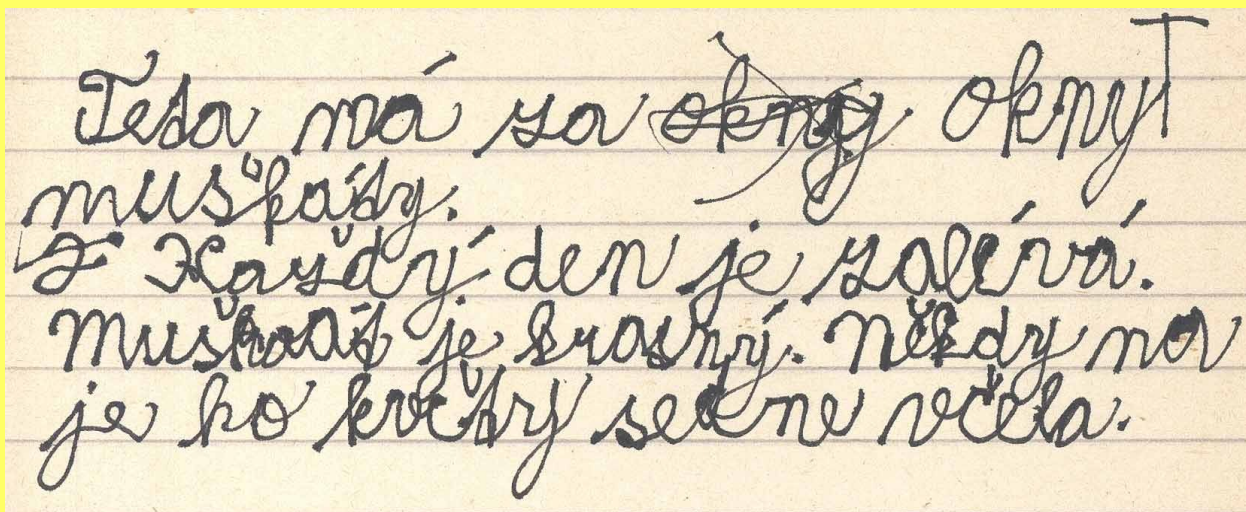 Teta má za okny
muškáty.
Každý den je zalévá.
Muškát je krasný. Někdy na
je ho květý sedne včela.